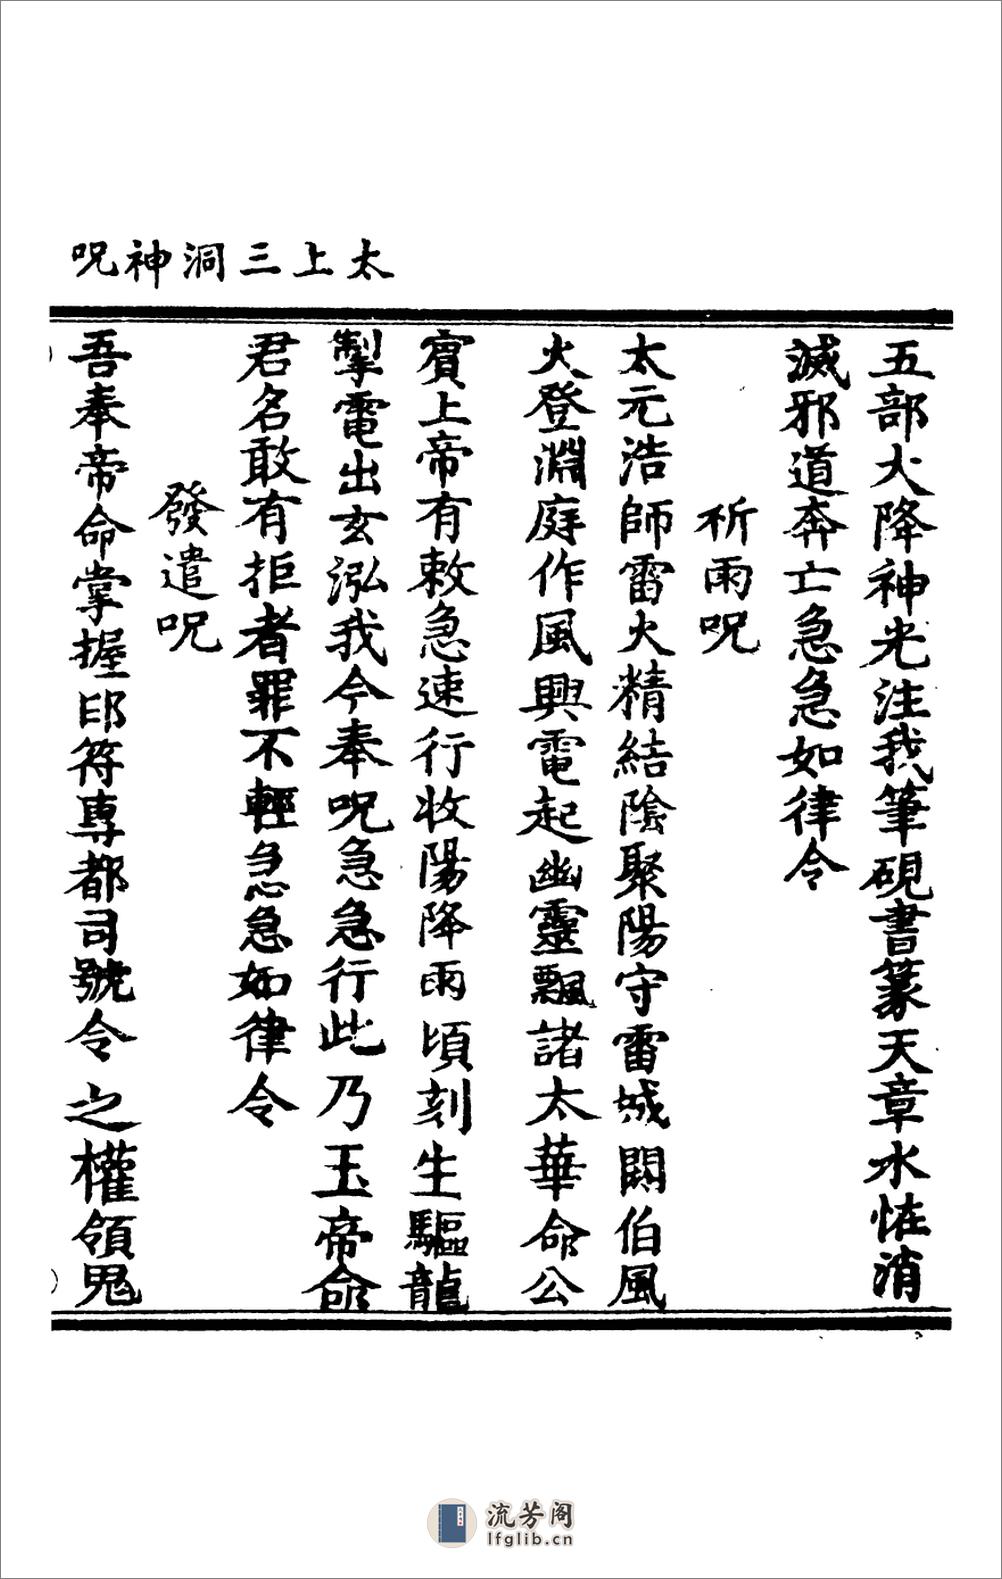 太上三洞神呪
五部火降神光注我筆硯書篆天章水怪消
滅邪道奔亡急急如律令
祈雨呪
太元浩師雷火精結陰聚陽守雷城関伯風
火登淵庭作風興電起幽靈飄諸太華命公
賓上帝有敕急速行收陽降雨頃刻生驅龍
掣電出玄泓我今奉呪急急行此乃玉帝命
君名敢有拒者罪不輕急急如律令
發遣呪
吾奉帝命掌握印符専都司號令之權領鬼
流芳阁
lfglib.cn